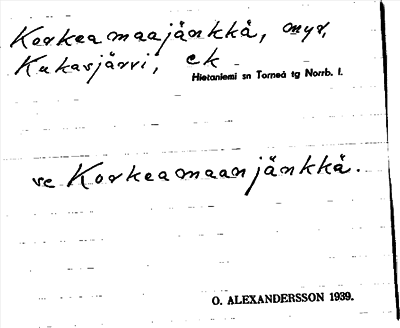 Korkeamaajänkkä, myr,
Kukasjärvi, ek
Hietaniemi sn Torneå tg Norrb. l.
ve Korkeamaanjänkkä.
O. ALEXANDERSSON 1939.